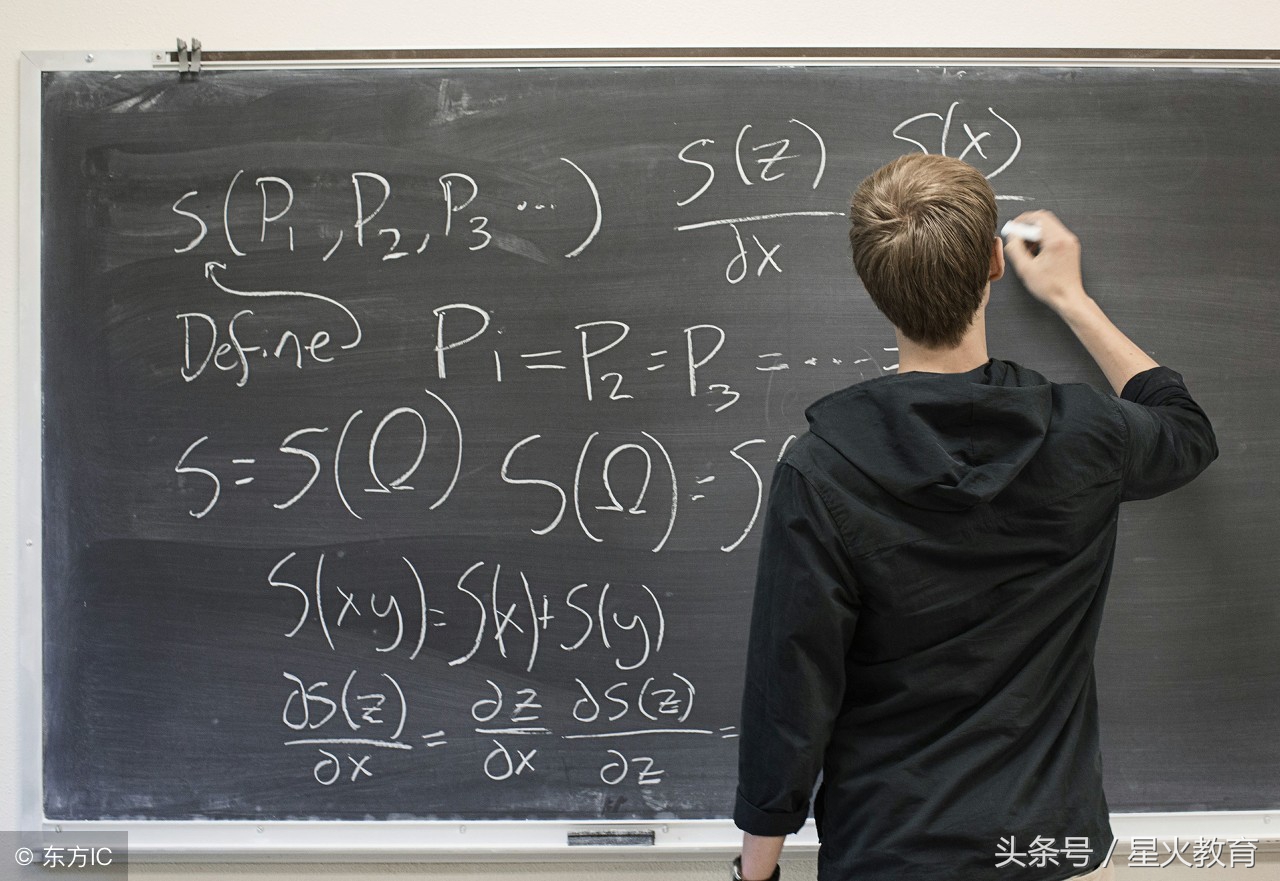 S(P₁, P₂, P₃ ... )
S(z)/∂x S(x)
Define P₁ = P₂ = P₃ = ..... =
S = S(Ω) S(Ω) = S(
S(xy) = S(x) + S(y)
∂S(z)/∂x = ∂z/∂x ∂S(z)/∂z =
© 东方IC
头条号 / 星火教育